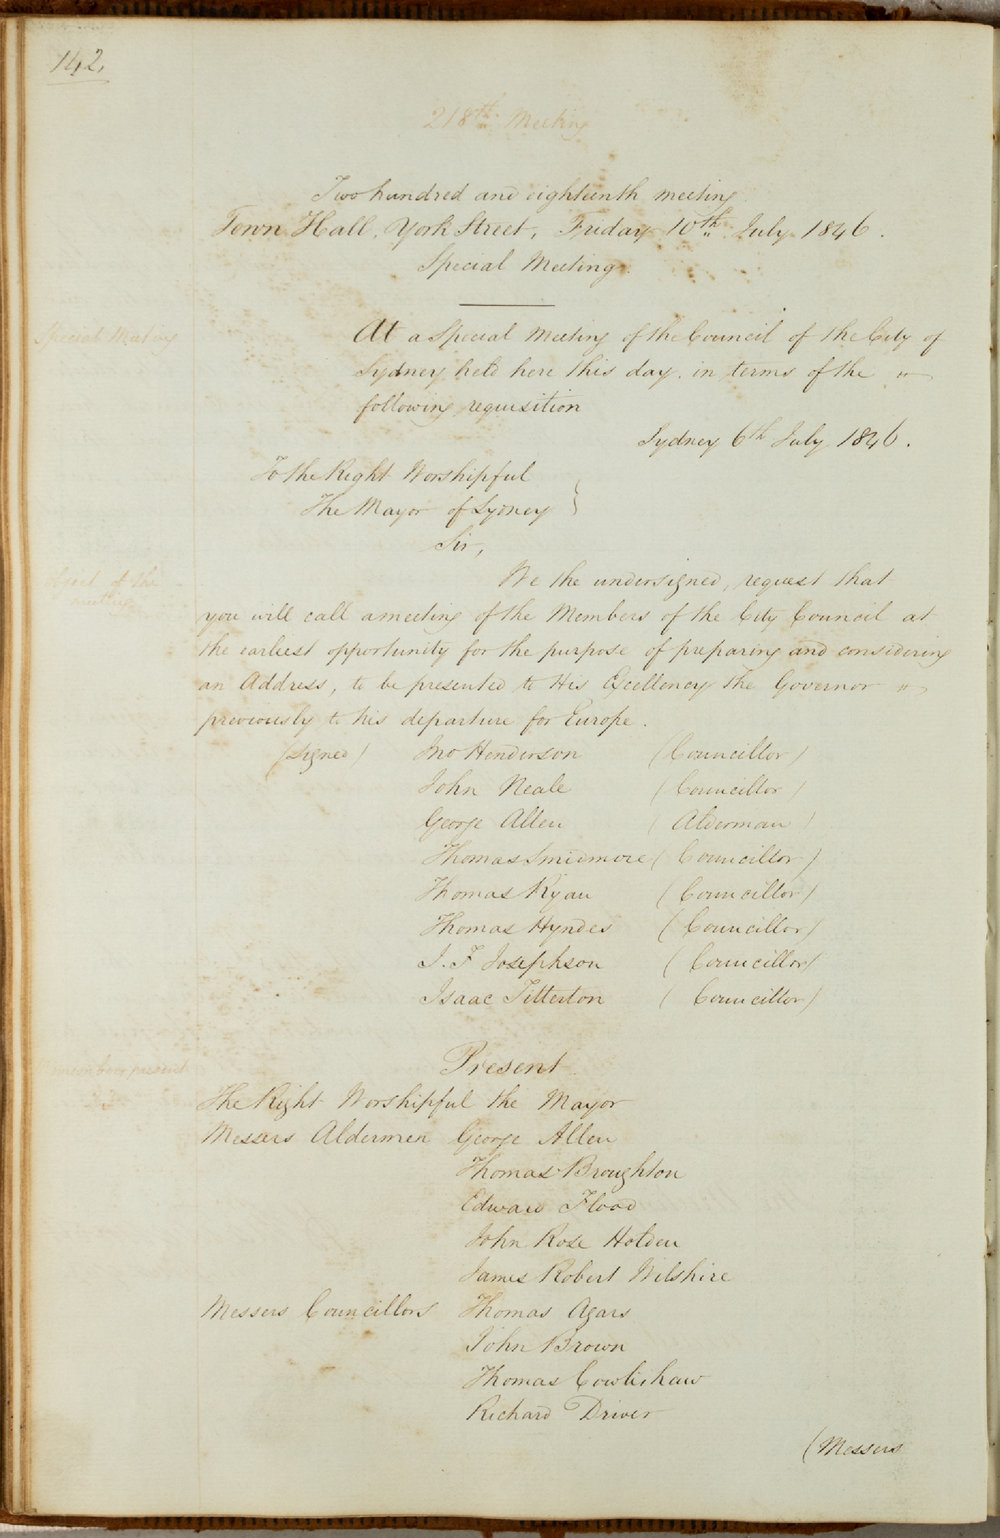 142.
218th Meeting
Two hundred and eighteenth meeting
Town Hall, York Street, Friday 10th July 1846.
Special Meeting.
Special Meeting
At a Special Meeting of the Council of the City of
Sydney held here this day in terms of the "
following requisition
Sydney 6th July 1846.
To the Right Worshipful
The Mayor of Sydney }
Sir,
We the undersigned, request that
object of the
meeting
you will call a meeting of the Members of the City Council at
the earliest opportunity for the purpose of preparing and considering
an Address, to be presented to His Excellency the Governor "
previously to his departure for Europe.
(Signed) Jno Henderson (Councillor)
John Neale (Councillor)
George Allen (Alderman)
Thomas Smidmore (Councillor)
Thomas Ryan (Councillor)
Thomas Hyndes (Councillor)
J. F Josephson (Councillor)
Isaac Titterton (Councillor)
Present
Members present
The Right Worshipful the Mayor
Messers Aldermen George Allen
Thomas Broughton
Edward Flood
John Rose Holden
James Robert Wilshire
Messers Councillors Thomas Agars
John Brown
Thomas Cowlishaw
Richard Driver
(Messers